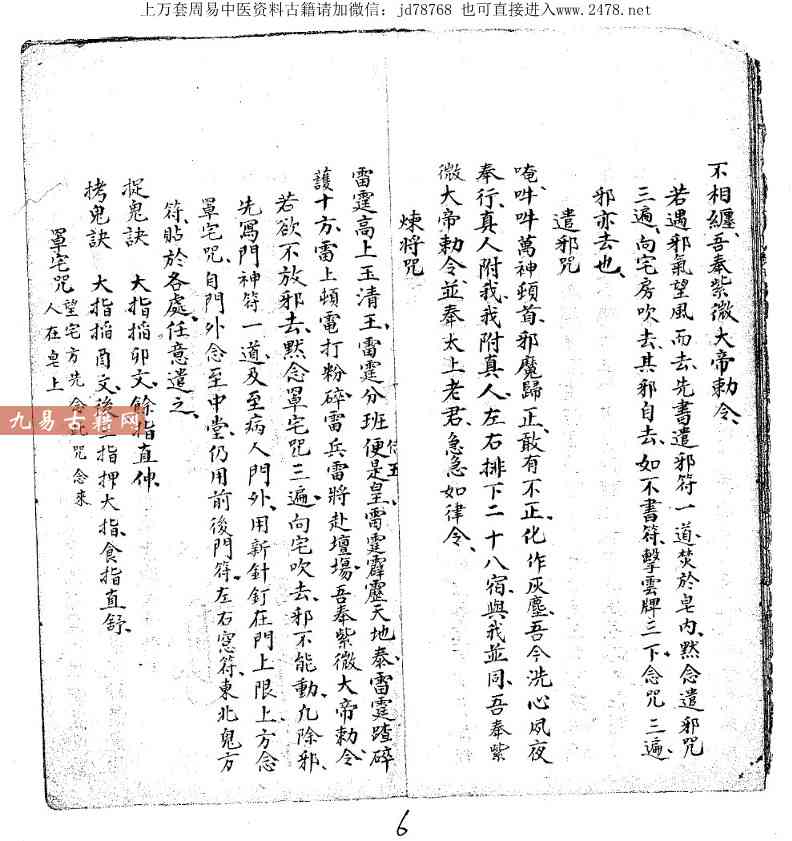 上万套周易中医资料古籍请加微信：jd78768 也可直接进入www.2478.net
不相纏、吾奉紫微大帝勅令、
若遇邪氣望風而去、先書遣邪符一道、焚於皂内、默念遣邪咒
三遍、向宅房吹去、其邪自去、如不書符、擊雲牌三下、念咒三遍、
邪亦去也、
遣邪咒
唵吽吽萬神頓首、邪魔歸正、敢有不正、化作灰塵、吾今洗心夙夜
奉行、真人附我、我附真人、左右排下二十八宿、與我並同、吾奉紫
微大帝勅令、並奉太上老君、急急如律令、
煉将咒
雷霆高上玉清王、雷霆分班便是皇、雷霆霹靂天地奉、雷霆踏碎
護十方、雷上頓電打粉碎、雷兵雷将赴壇場、吾奉紫微大帝勅令、
若欲不放邪去、默念罩宅咒三遍、向宅吹去、邪不能動、凡除邪、
先寫門神符一道、及至病人門外、用新針釘在門上限上、方念
罩宅咒、自門外念至中堂、仍用前後門符、左右窓符、東北鬼方
符、貼於各處、任意遣之、
捉鬼訣 大指掐卯文、餘指直伸、
拷鬼訣 大指掐酉文、後指押大指、食指直舒、
罩宅咒 望宅方先念咒念來
人在皂上
九易古籍网
6